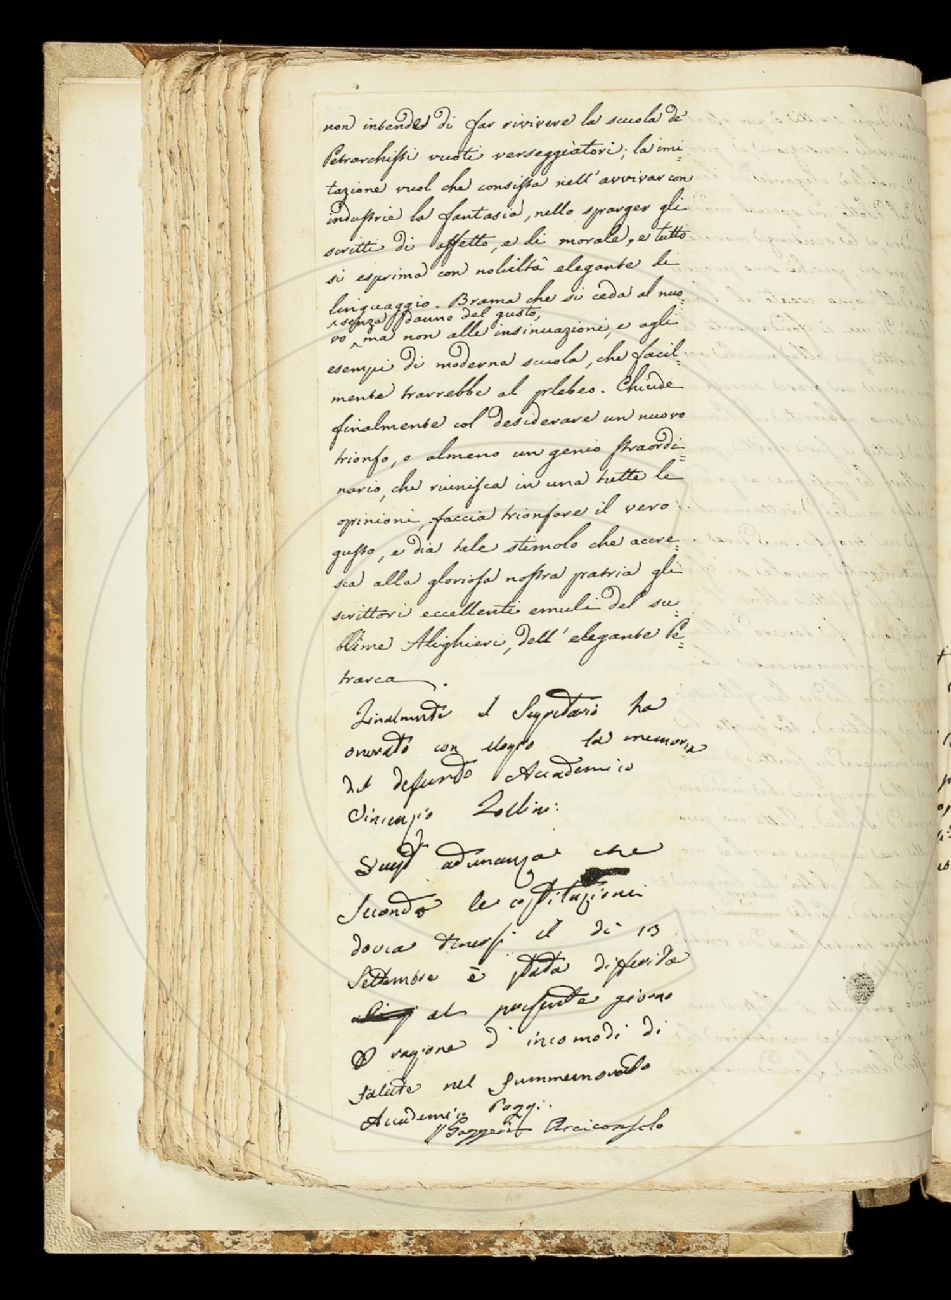 non intende di far rivivere la scuola de
Petrarchisti vuoti verseggiatori; la imi=
tazione vuol che consista nell'avvivar con
industrie la fantasia, nello sparger gli
scritti di affetto, e di morale, e tutto
si esprima con nobiltà elegante di
linguaggio. Brama che si ceda al nuo=
senza danno del gusto,
vo ma non alle insinuazioni, e agli
esempi di moderna scuola, che facil=
mente trarrebbe al plebeo. Chiude
finalmente col desiderare un nuovo
trionfo, o almeno un genio straordi=
nario, che riunisca in una tutte le
opinioni, faccia trionfare il vero
gusto, e dia tale stimolo che accre=
sca alla gloriosa nostra patria gli
scrittori eccellenti emuli del su=
blime Alighieri, dell'elegante Pe=
trarca.
Finalmente il Segretario ha
onorato con elogio la memoria
del defunto Accademico
Vincenzio Zollini.
adunanza che
secondo le costituzioni
dovea tenersi il di 13
Settembre è stata differita
al presente giorno
ragione d'incomodi di
salute nel summenovato
Accademico Poggi.
Arciconsolo